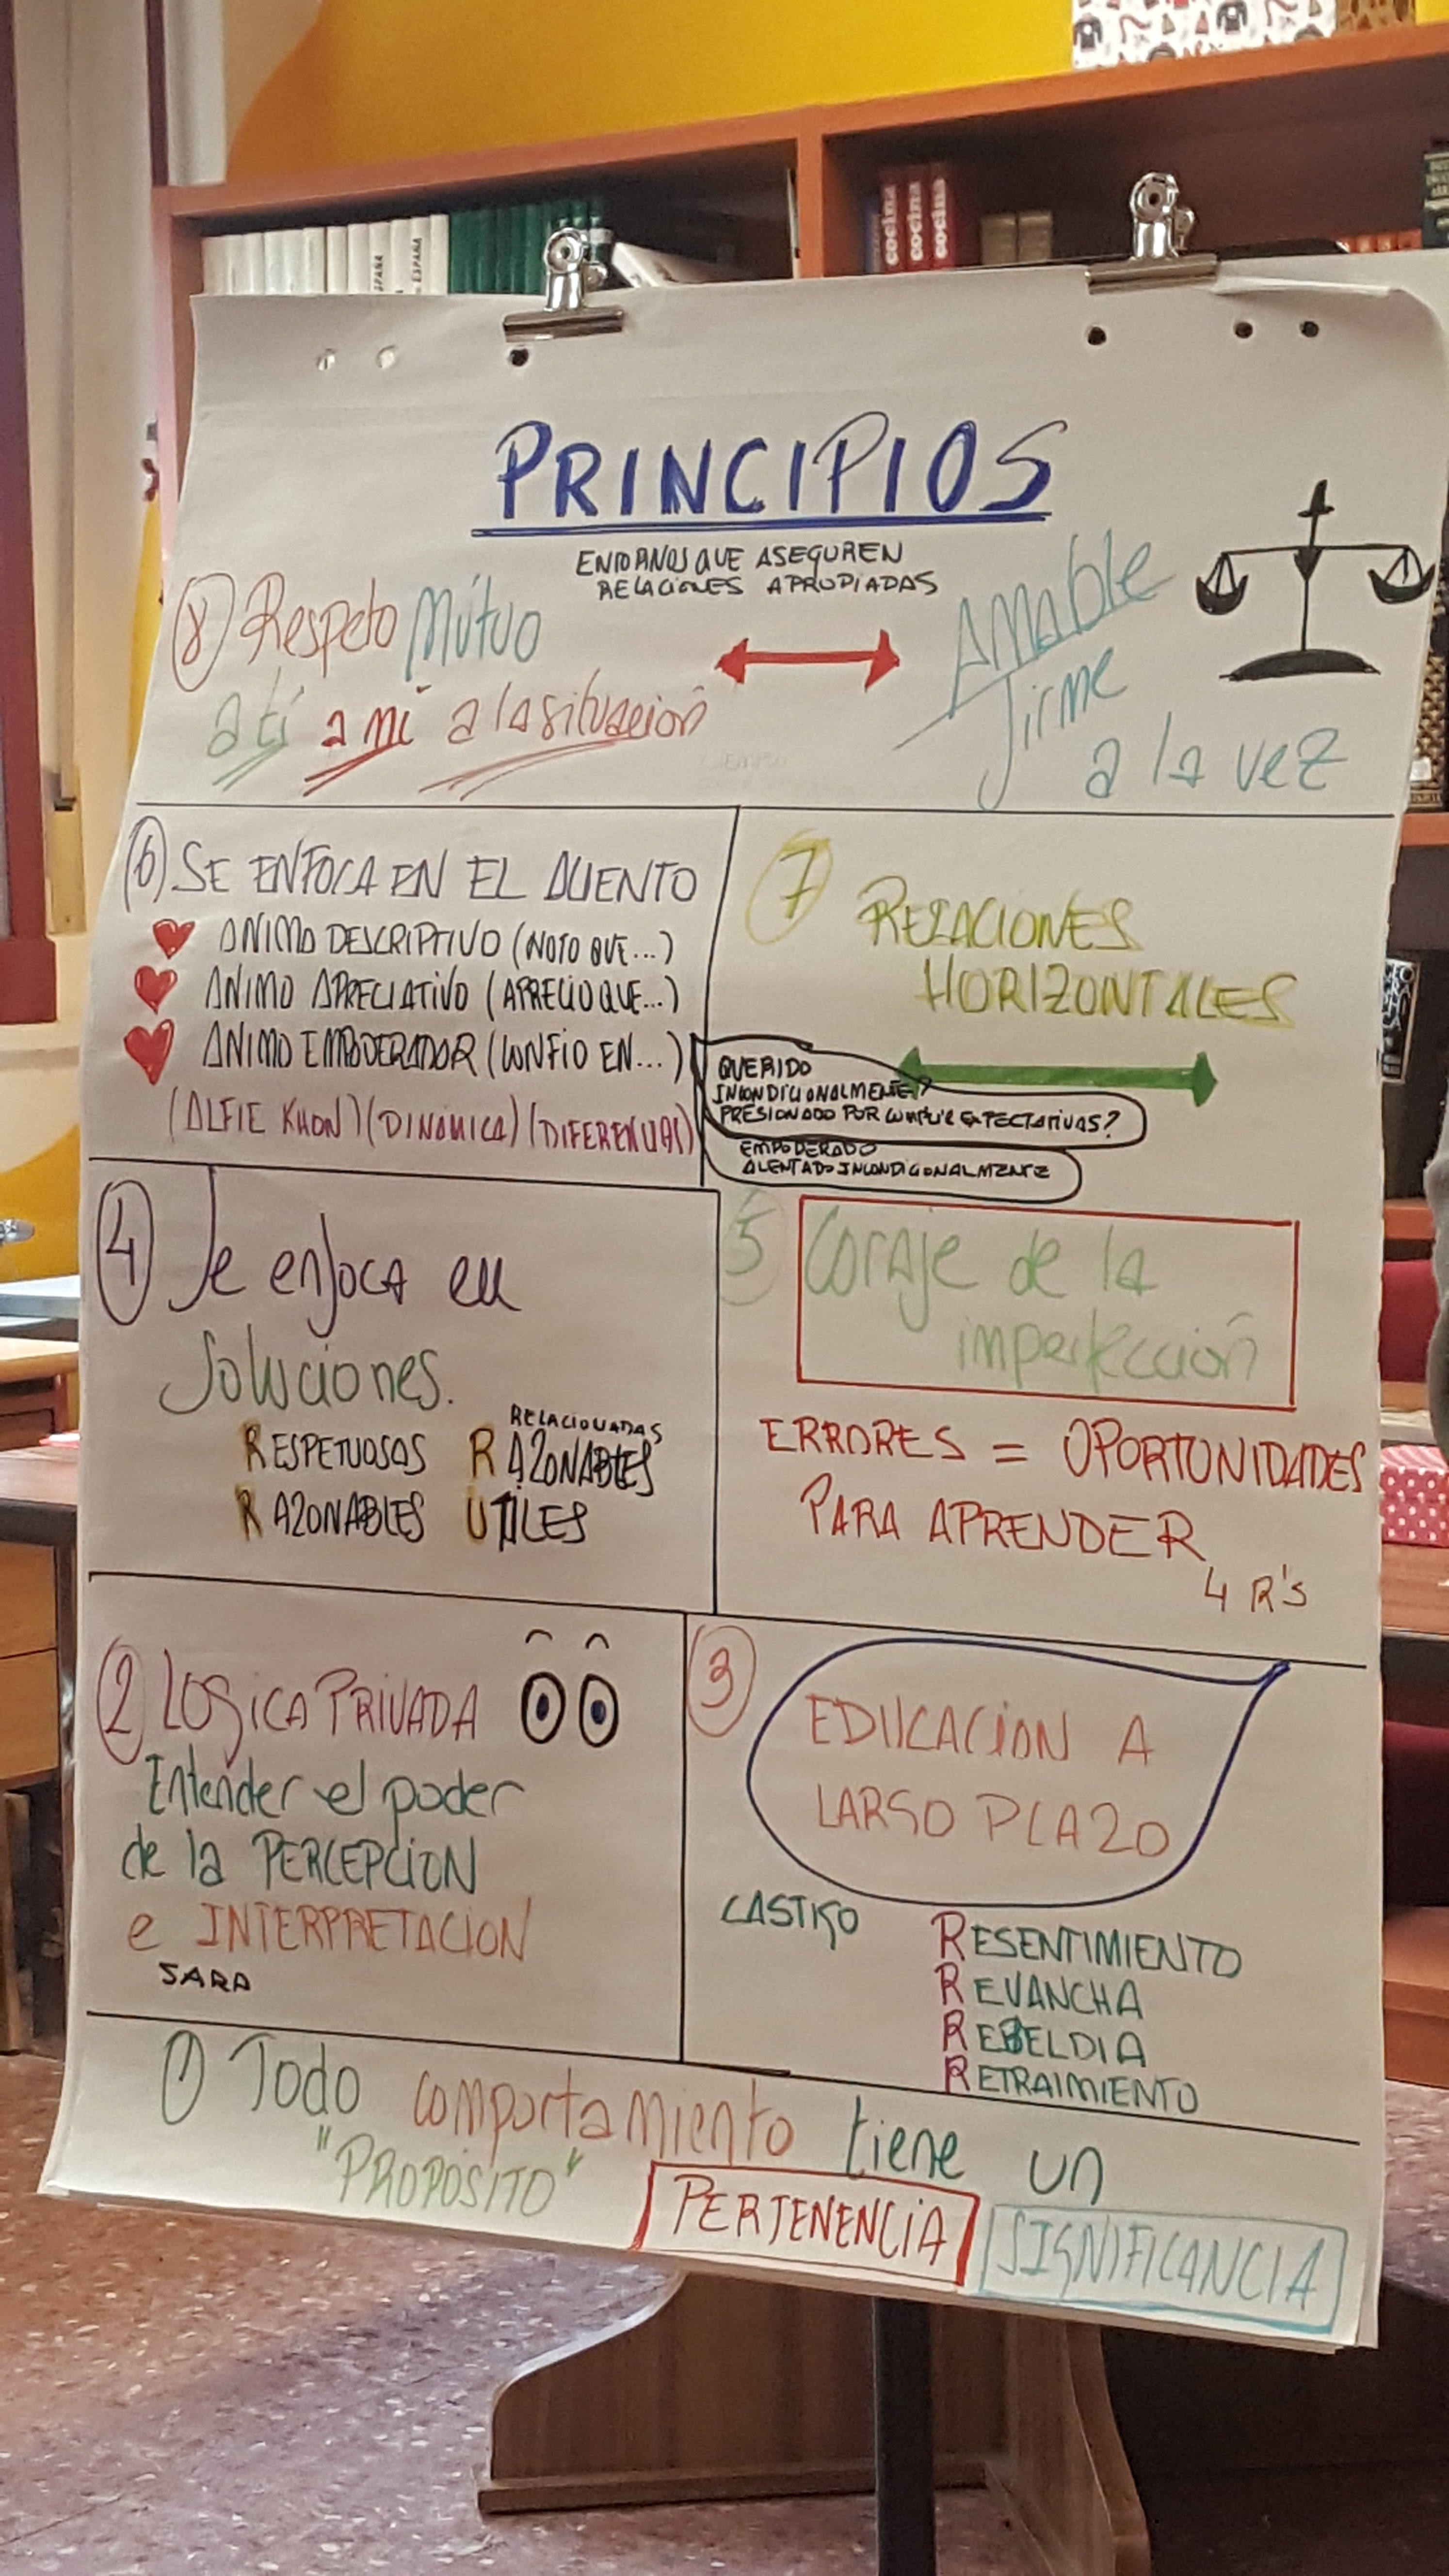 ESPAÑA
ESPAÑA
cocina
cocina
cocina
PRINCIPIOS
ENTORNOS QUE ASEGUREN
RELACIONES APROPIADAS
8 Respeto Mútuo
a tí a mí a la situación
Amable
firme
a la vez
6 SE ENFOCA EN EL ALIENTO
ANIMO DESCRIPTIVO (NOTO QUE...)
ANIMO APRECIATIVO (APRECIO QUE...)
ANIMO EMPODERADOR (CONFIO EN...)
(ALFIE KHON) (DINÁMICA) (DIFERENCIAS)
7 RELACIONES
HORIZONTALES
QUERIDO
INCONDICIONALMENTE?
PRESIONADO POR CUMPLIR EXPECTATIVAS?
EMPODERADO
ALENTADO INCONDICIONALMENTE
4 Se enfoca en
Soluciones.
RELACIONADAS
RESPETUOSAS RAZONABLES
RAZONABLES UTILES
5 Coraje de la
imperfección
ERRORES = OPORTUNIDADES
PARA APRENDER
4 R's
2 LOGICA PRIVADA
Entender el poder
de la PERCEPCION
e INTERPRETACION
SARA
3 EDUCACION A
LARGO PLAZO
CASTIGO
RESENTIMIENTO
REVANCHA
REBELDIA
RETRAIMIENTO
1 Todo comportamiento tiene un
"PROPÓSITO" PERTENENCIA SIGNIFICANCIA